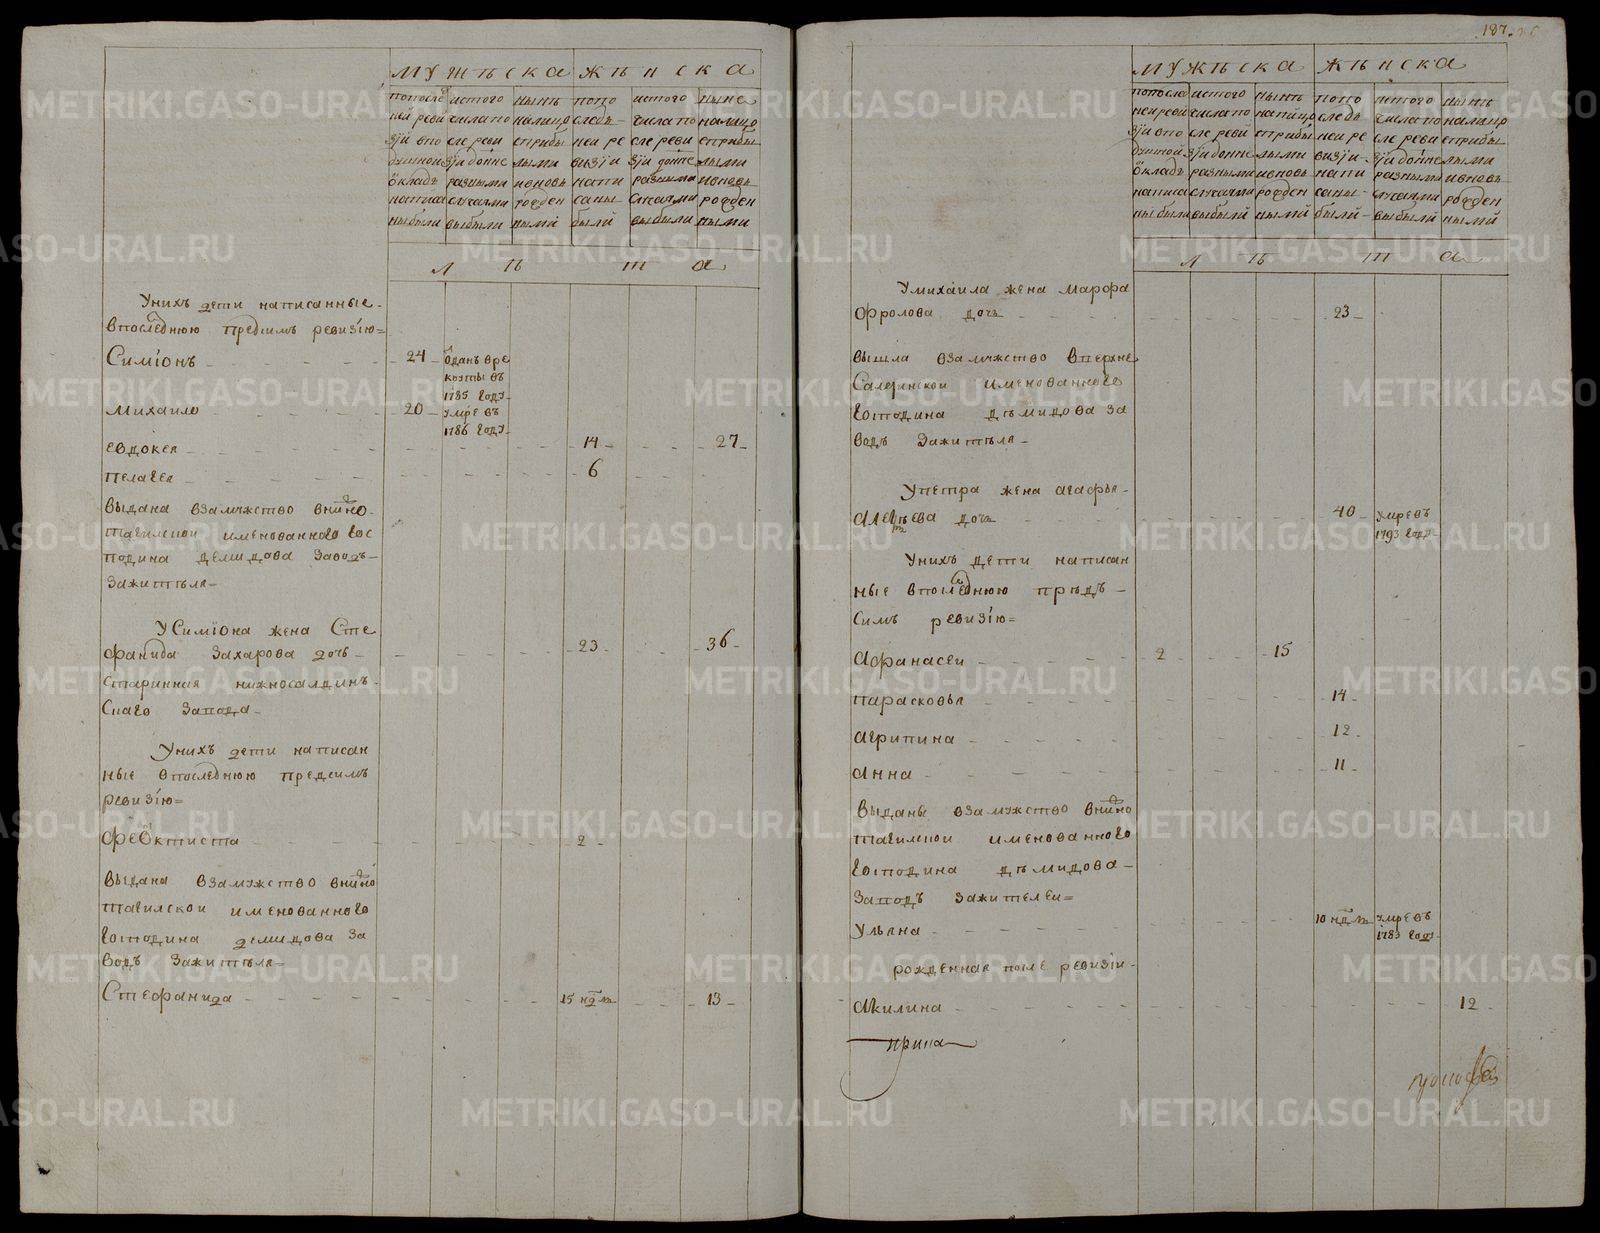 мужъска
жѣнска
попослѣд
ней реви
зіи впо
душной
окладъ
написа
ны были
истого
числа по
сле реви
зіи до нне
разными
случаями
выбыли
нынѣ
налицо
сприбы
лыми
ивновь
рожден
ными
попо
следъ-
ней ре
визіи
напи
саны-
были
истого
числа по
сле реви
зіи до нне
разными
случаями
выбыли
ныне
налицо
сприбы
лыми
ивновь
рожден
ными
лѣта
Унихъ дети написанные-
впоследнюю предсимъ ревизію=
Симіонъ 24 Отданъ вре
круты въ
1785 году-
Михайло 20 умре въ
1786 году-
евдокея 14 27
пелагея 6
выдана взамужство внижно
тагилской именованного гос
подина демидова заводъ-
зажителя-
Усимiона жена Сте
фанида Захарова дочь- 23 36
Старинная нижносалдинъ-
Скаго завода-
Унихъ дети написан
ные впоследнюю предсимъ
ревизію=
Феоктиста 2
выдана взамужство внижно
тагилской именованного
Господина демидова за
водъ зажителя=
Стефанида 15 нд ль 13
187
мужѣска
жѣнска
попослѣд
ней реви
зіи впо
душной
окладъ
написа
ны были
истого
числа по
сле реви
зіи до нне
разными
случаями
выбылй
нынѣ
налицо
сприбы
лыми
ивновь
рожден
нымй
попо
следъ
ней ре
визіи-
напи
саны-
былй-
истого
числа по
сле реви
зіи до нне
разными
случаями
выбылй
нынѣ
налицо
сприбы
лыми
ивновь
рожден
нымй
лѣта
Умихаила жена марфа
Фролова дочь 23
вышла взамужство вверхне
Салдинской именованного
Господина дѣмидова за
водъ зажитѣля-
Упетра жена агафья-
Алексѣева дочь 40 умре въ
1793 году-
Унихъ дѣти написан
ные впоследнюю прѣдъ-
Симъ ревизію=
Афанасеи 2 15
парасковья 14
агрипина 12
анна 11
выданы взамужство внижно
тагилской именованного
Господина дѣмидова-
заводъ зажителеи=
ульяна 10 нд ль умре въ
1783 году-
рожденная после ревизіи-
Акилина 12
ирина